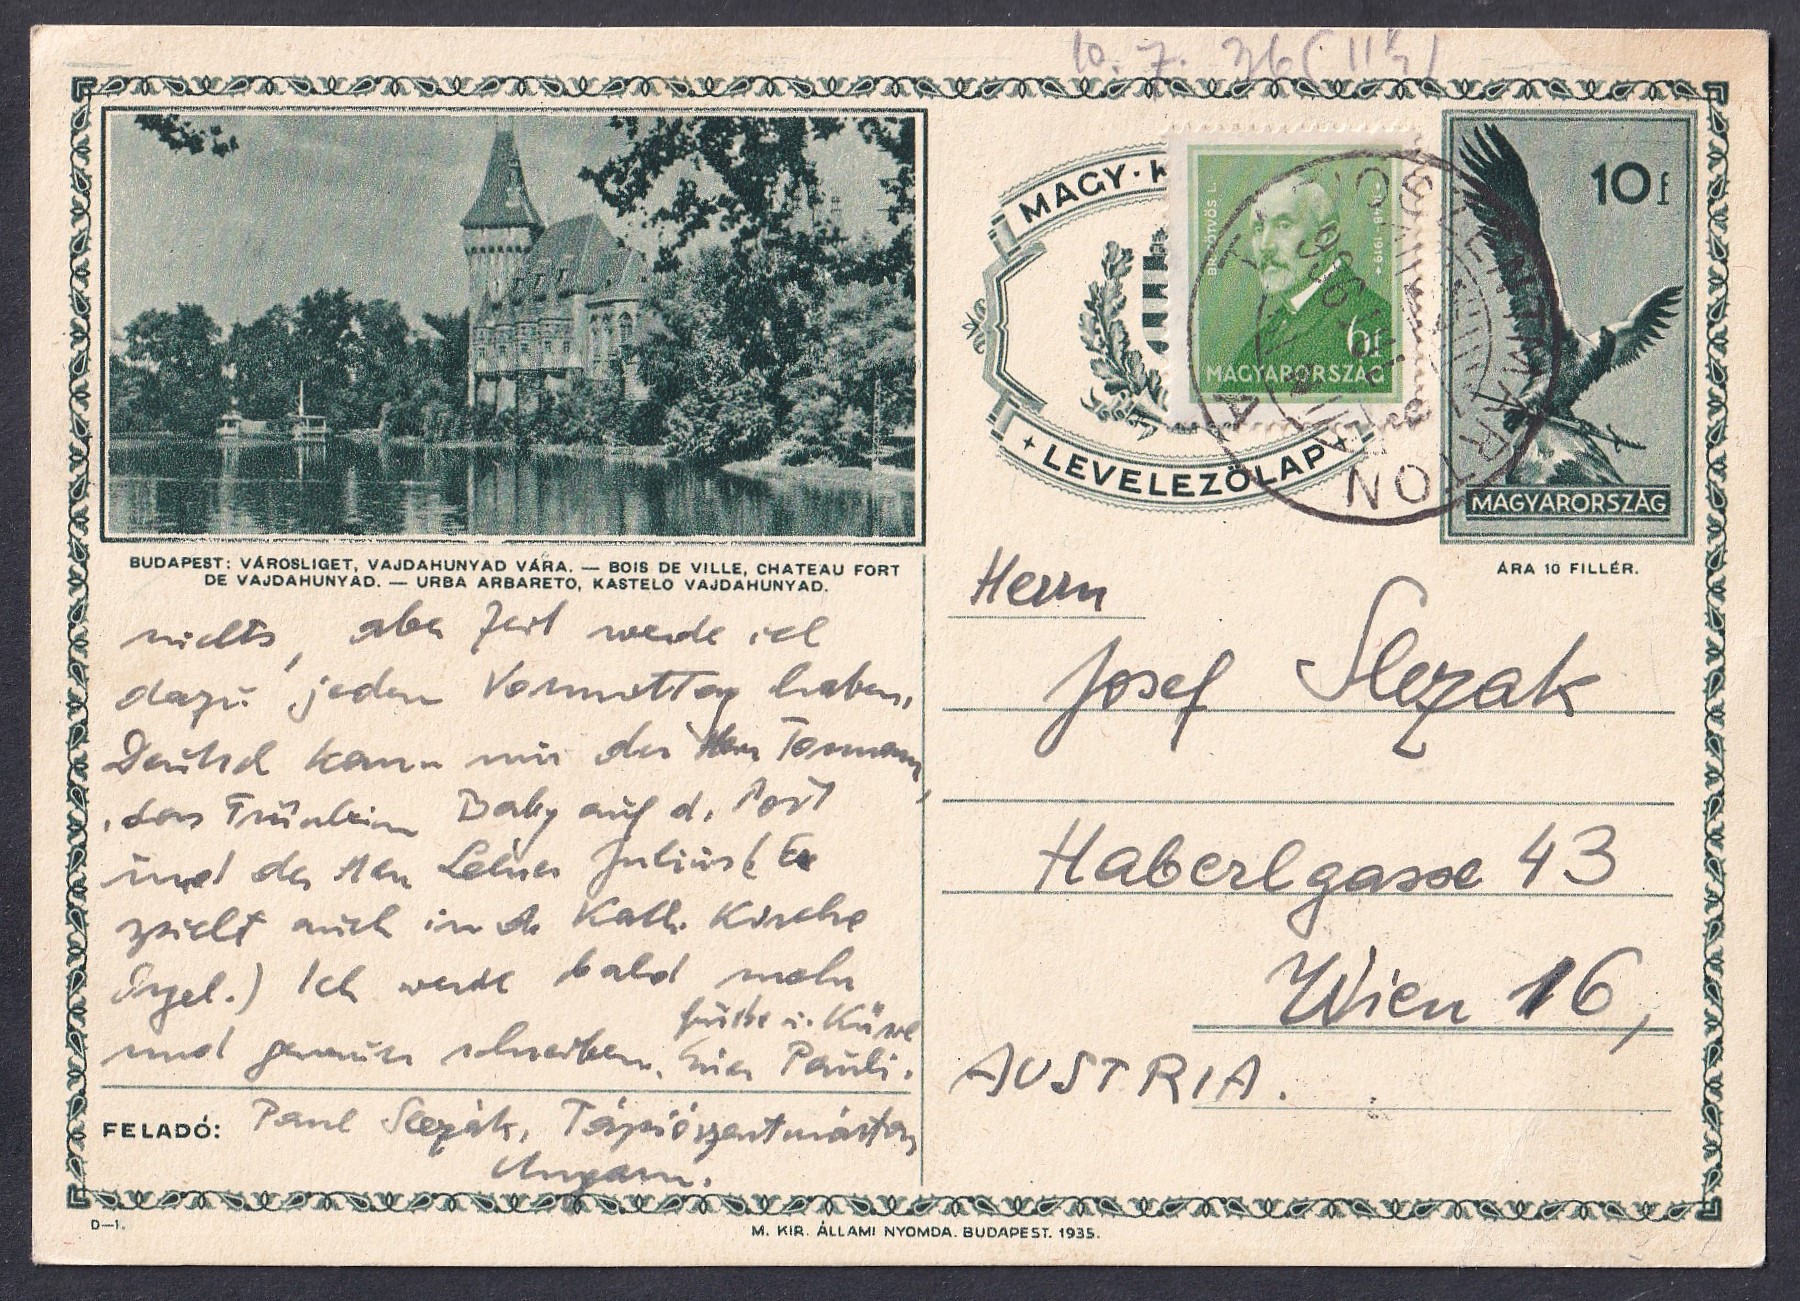 10. 7. 36 (11½)
MAGY. K
LEVELEZŐLAP
BR. EÖTVÖS L.
1848-1919
6f
MAGYARORSZÁG
TÁPIÓSZENTMÁRTON
10f
MAGYARORSZÁG
ÁRA 10 FILLÉR.
BUDAPEST: VÁROSLIGET, VAJDAHUNYAD VÁRA. — BOIS DE VILLE, CHATEAU FORT
DE VAJDAHUNYAD. — URBA ARBARETO, KASTELO VAJDAHUNYAD.
nichts, aber Zeit werde ich
dazu jeden Vormittag haben.
Deutsch kann nur der Herr
das Fräulein Baby auf d. Post
und der Herr Lehrer Julius (Er
spielt auch in d. Kath. Kirche
Orgel.) Ich werde bald mehr
und genauer schreiben. Grüße u. Küsse
Euer Pauli.
FELADÓ: Paul Slezák, Tápiószentmárton,
Ungarn.
Herrn
Josef Slezak
Haberlgasse 43
Wien 16,
AUSTRIA.
D—1.
M. KIR. ÁLLAMI NYOMDA. BUDAPEST. 1935.